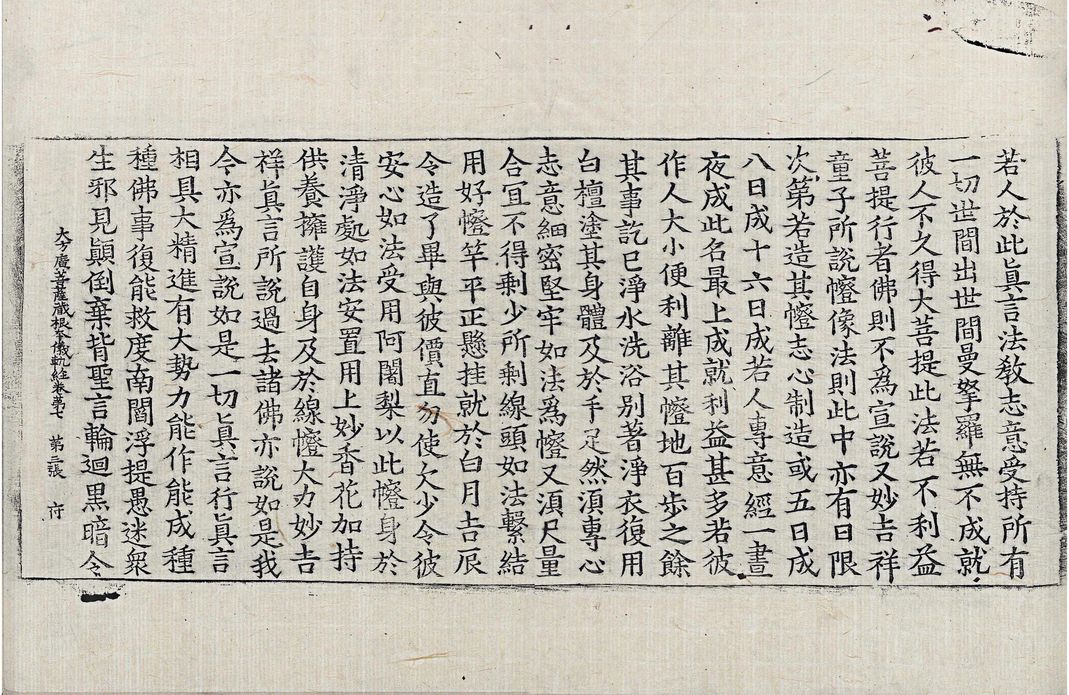 若人於此眞言法教志意受持所有
一切世間出世間曼拏羅無不成就
彼人不久得大菩提此法若不利益
菩提行者佛則不爲宣說又妙吉祥
童子所說㡧像法則此中亦有日限
次第若造其㡧志心制造或五日成
八日成十六日成若人專意經一晝
夜成此名最上成就利益甚多若彼
作人大小便利離其㡧地百步之餘
其事訖已淨水洗浴別著淨衣復用
白檀塗其身體及於手足然湏專心
志意細密堅牢如法爲㡧又湏尺量
合冝不得剰少所剰線頭如法繫結
用好㡧竿平正懸挂就於白月吉辰
令造了畢與彼價直勿使欠少令彼
安心如法受用阿闍梨以此㡧身於
清淨處如法安置用上妙香花加持
供養擁護自身及於線㡧大力妙吉
祥眞言所說過去諸佛亦說如是我
今亦爲宣說如是一切眞言行眞言
相具大精進有大勢力能作能成種
種佛事復能救度南閻浮提愚迷衆
生邪見顚倒棄背聖言輪迴黒暗令
大方廣菩薩藏根本儀軌經卷第七 第二張 府